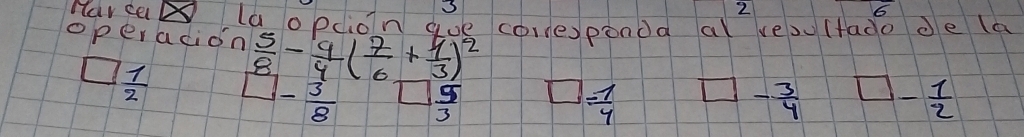 3 2 6
Marca ☒ la opción que corresponda al resultado de la
operación 5/8 - 9/4 (7/6 + 1/3)²
☐ 1/2 ☐ -3/8 ☐ 5/3 ☐ -1/4 ☐ -3/4 ☐ -1/2